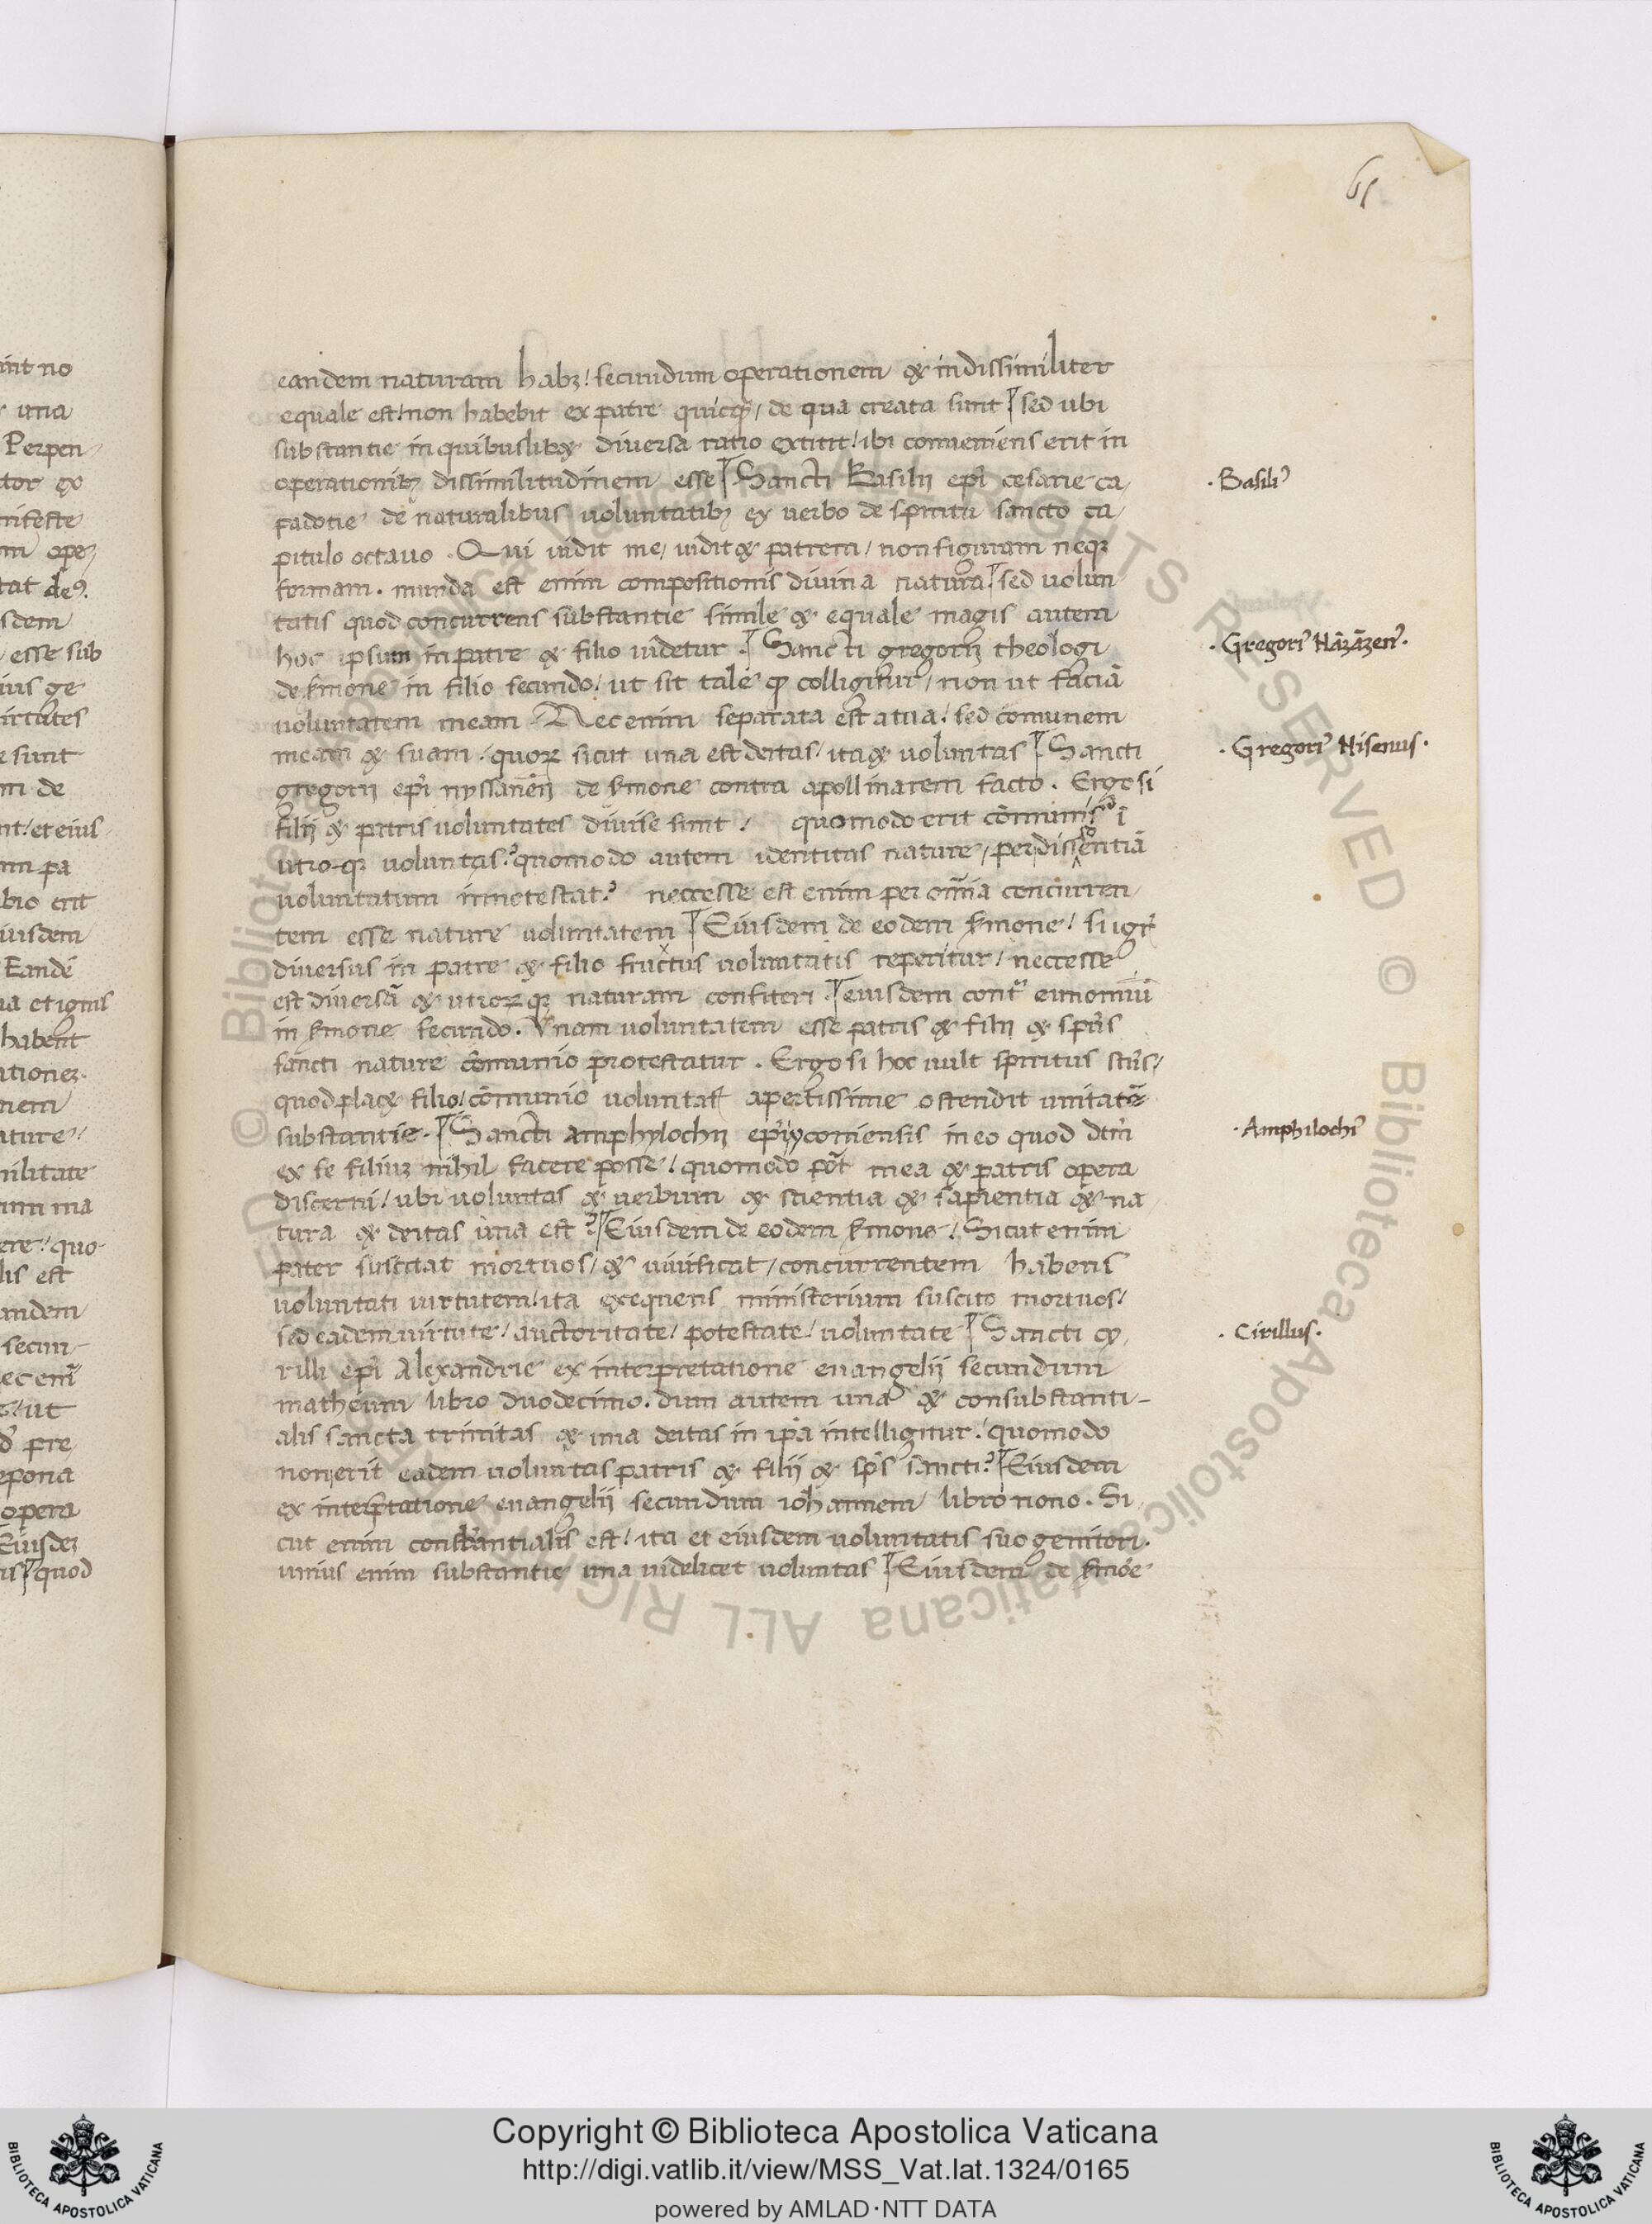 61
eandem naturam habꝫ / secundum operationem & indissimiliter
equale est / non habebit ex patre quicqꝫ / de qua creata sunt sed ubi
substantie in quibuslib& diversa ratio extitit / ibi conveniens erit in
operationibꝫ dissimilitudinem esse Sancti Basilii ep̄i cesarie ca/
padocie de naturalibus voluntatibꝫ ex verbo de spiritu sancto ca/
pitulo octavo . Qui vidit me / vidit & patrem / non figuram neqꝫ
formam . munda est enim compositionis divina natura sed volun
tatis quod concurrens substantie simile & equale magis autem
hoc ipsum in patre & filio videtur . Sancti gregorii theologi
de s̄mone in filio secundo / ut sit tale qd colligitur / non ut faciā
voluntatem meam . Nec enim separata est a tua / sed cōmunem
meam & suam / quoꝝ sicut una est deitas / ita & voluntas Sancti
gregorii ep̄i nyssanēn de s̄mone contra apollinarem facto . Ergo si
filii & patris voluntates divise sunt / quomodo erit cōmunis ī
utroqꝫ voluntas ? quomodo autem identitas nature / per dissentiā
voluntatum innotescat ? neccesse est enim per om̄ia concurren/
tem esse nature voluntatem Eiusdem de eodem s̄mone / si igr̄
diversus in patre & filio fructus voluntatis reperitur / neccesse
est diversā & utriꝝqꝫ naturam confiteri . eiusdem contͣ eunomiū
in s̄mone secundo . Vnam voluntatem esse patris & filii & sp̄us
sancti nature cōmunio protestatur . Ergo si hoc vult spiritus sc̄us /
quod plac& filio / cōmunio voluntatis apertissime ostendit unitatē
substantie . Sancti Amphylochii ep̄i yconiensis in eo quod dc̄m
ex se filium nihil facere posse / quomodo pōt mea & patris opera
discerni / ubi voluntas & verbum & scientia & sapientia & na/
tura & deitas una est ? Eiusdem de eodem s̄mone / Sicut enim
pater suscitat mortuos / & vivificat / concurrentem habens
voluntati virtutem / ita exequens ministerium suscito mortuos /
sed eadem virtute / auctoritate / potestate / voluntate Sancti cy/
rilli ep̄i Alexandrie ex interpretatione euangelii secundum
matheum libro duodecimo . dum autem una & consubstanti-
alis sancta trinitas & una deitas in ip̄a intelligitur / quomodo
non erit eadem voluntas patris & filii & sp̄s sancti ? Eiusdem
ex interp̄tatione euangelii secundum iohannem libro nono . Si/
cut enim consubstantialis est / ita et eiusdem voluntatis suo genitori .
unius enim substantie una videlicet voluntas Eiusdem de s̄moē
· Basili᾿
· Gregori᾿ Nāzāzen᾿ ·
· Gregori᾿ Nisenus ·
· Amphilochi᾿
· Cirillus ·
Copyright © Biblioteca Apostolica Vaticana
http://digi.vatlib.it/view/MSS_Vat.lat.1324/0165
powered by AMLAD·NTT DATA
BIBLIOTECA APOSTOLICA VATICANA
BIBLIOTECA APOSTOLICA VATICANA